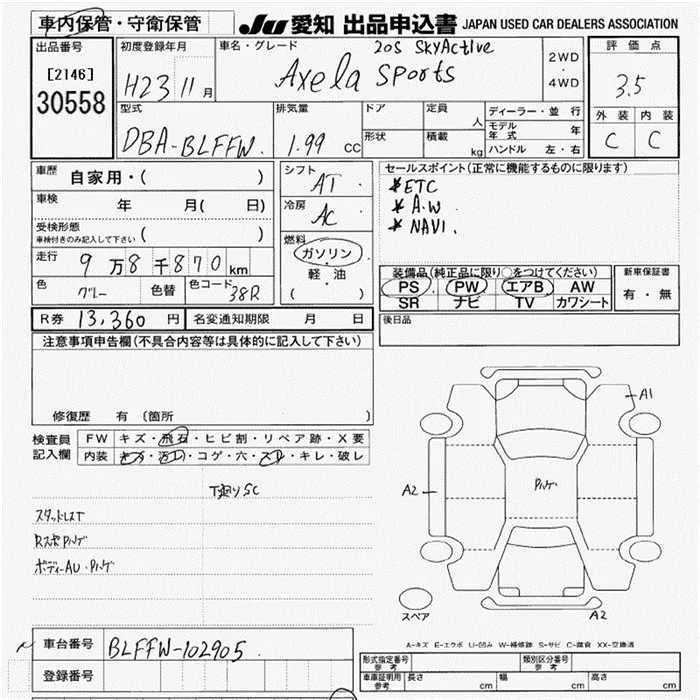 車内保管・守衛保管 JU 愛知 出品申込書 JAPAN USED CAR DEALERS ASSOCIATION
出品番号 初度登録年月 車名・グレード 20S SKYACTIVE 評価点
[2146] H23 11月 Axela SPORTS 2WD・4WD 3.5
30558
型式 排気量 ドア 定員 人 ディーラー・並行 外装 内装
DBA-BLFFW. 1.99 CC 形状 積載 kg モデル年式 年 C C
ハンドル 左・右
車歴 自家用・( ) シフト AT セールスポイント(正常に機能するものに限ります)
車検 年 月( 日) 冷房 AC *ETC
*A.W
受検形態 ( ) *NAVI.
車検付きのみ記入して下さい
走行 9万8千870km 燃料 ガソリン 軽油 ( ) 装備品(純正品に限り○をつけてください) 新車保証書
色 グレー 色替 色コード 38R PS PW エアB AW 有・無
SR ナビ TV カワシート
R券 13,360円 名変通知期限 月 日 後日品
注意事項申告欄(不具合内容等は具体的に記入して下さい)
修復歴 有(箇所 )
検査員記入欄 FW キズ・飛石・ヒビ割・リペア跡・X要
内装 キズ・汚レ・コゲ・穴・スレ・キレ・破レ
A1
A2
下廻りSC
スタッドレスT
RスポPハゲ
ボディーAU・Pハゲ
Pハゲ
スペア A2
A-キズ E-エクボ U-凹み W-補修跡 S-サビ C-腐食 XX-交換済
車台番号 BLFFW-102905
登録番号
形式指定番号 参考 類別区分番号 参考
車庫証明用 参考 長さ cm 幅 cm 高さ cm